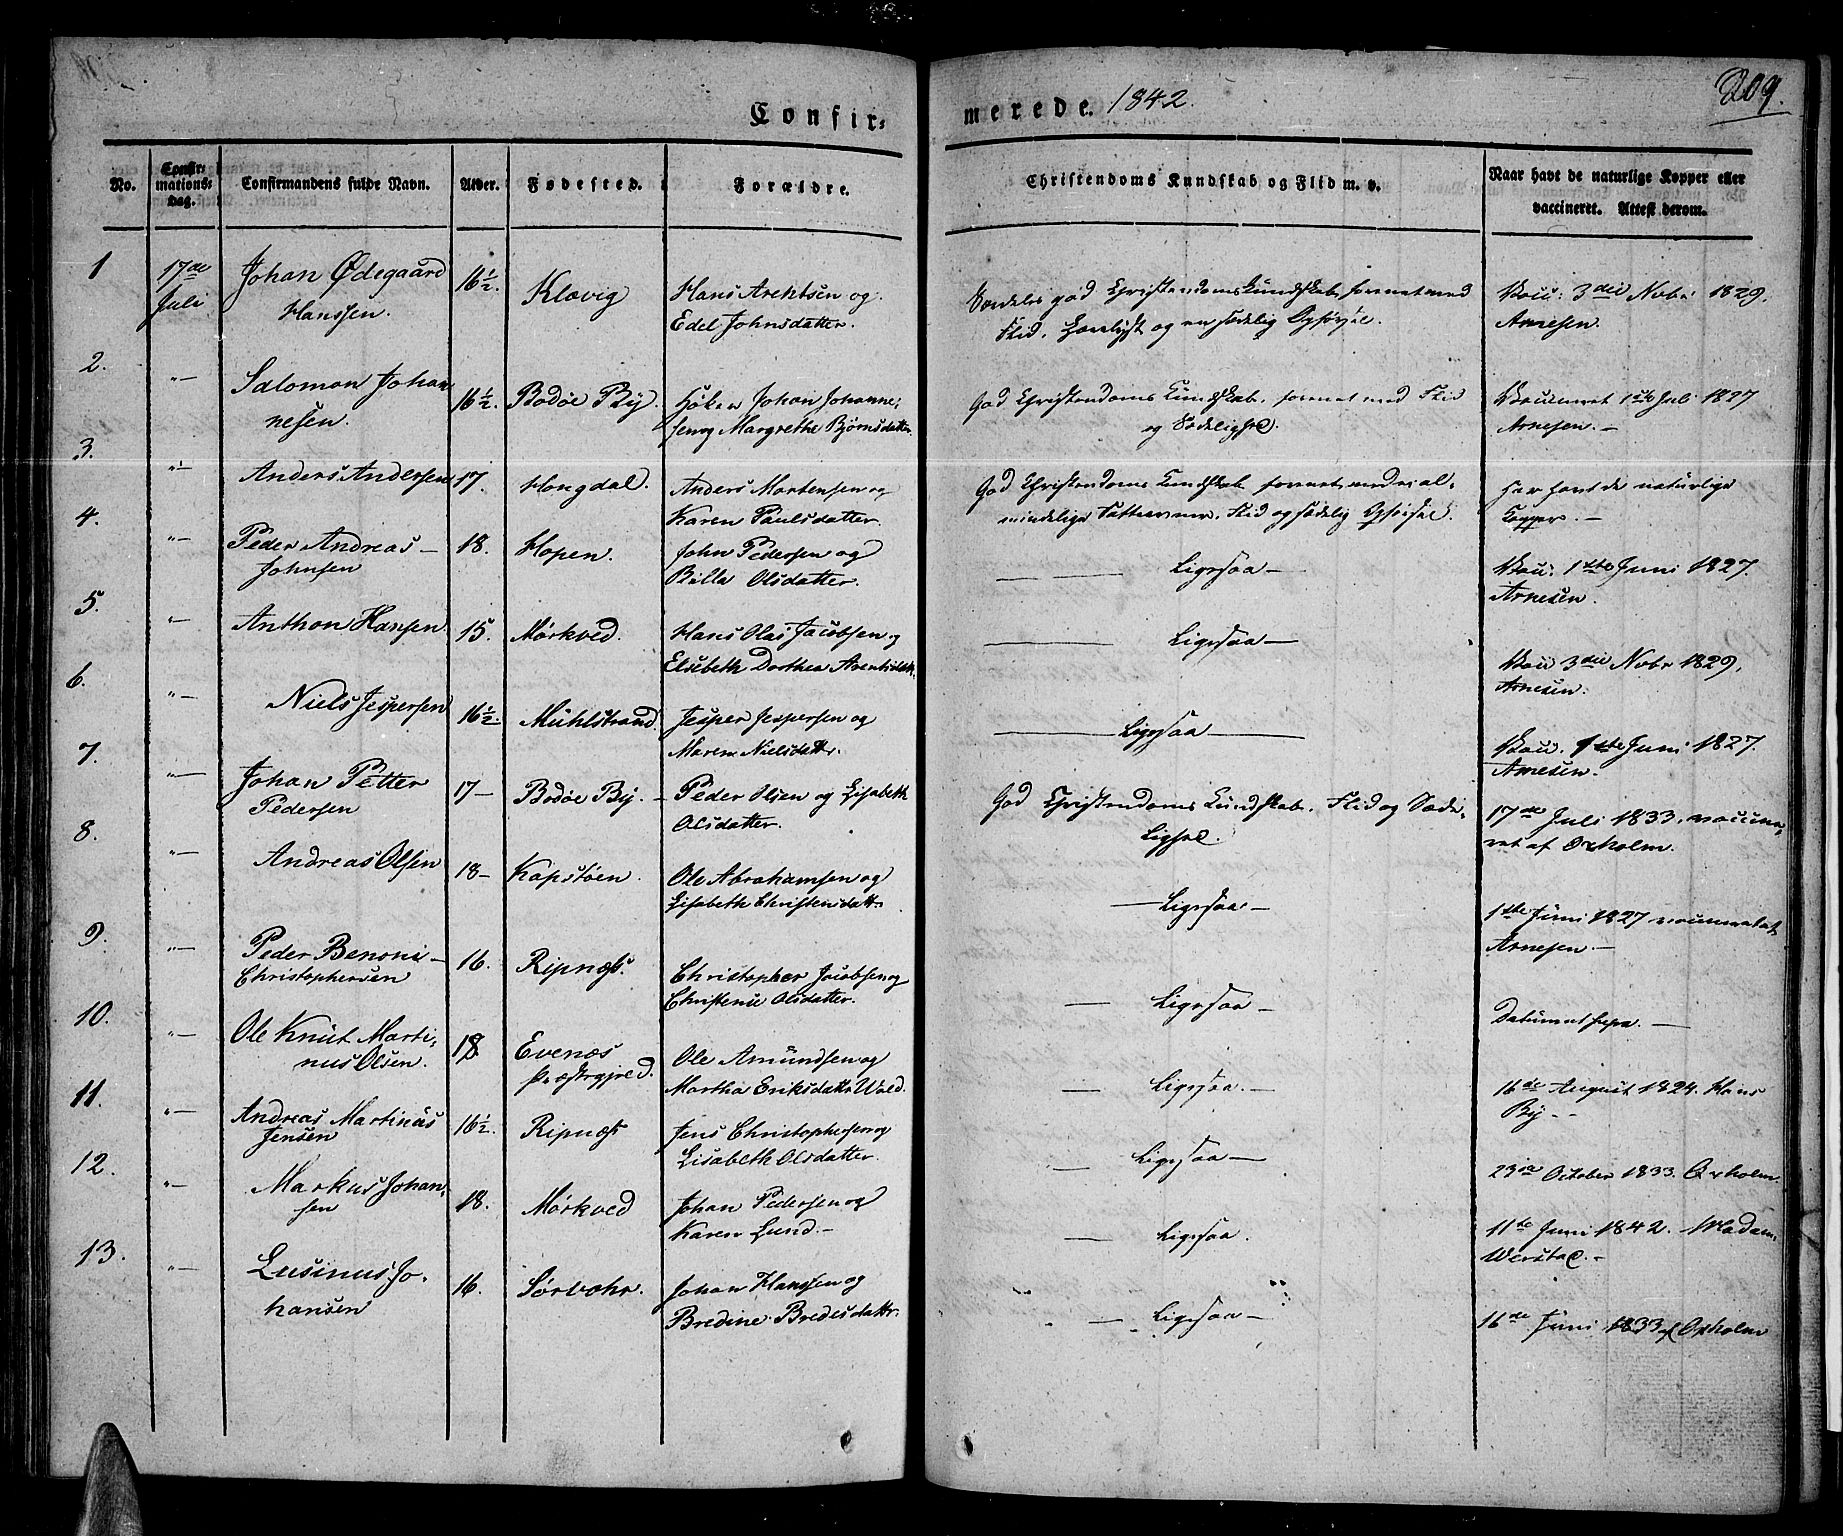 Confir=
merede. 1842.
209.
No.
Confir=
mations=
dag.
Confirmandens fulde Navn.
Alder.
Fødested.
Forældre.
Christendoms Kundskab og Flid m. v.
Naar havt de naturlige Kopper eller
vaccineret. Attest derom.
1
17de
Juli
Johan Ødegaard
Hanssen.
16½.
Klævig
Hans Arentsen og
Edel Johnsdatter.
Særdeles god Christendomskundskab, forenet med
Flid, Lærelyst og en sædelig Opførsel.
Vacc: 3die Nobr 1829.
Arnesen.
2.
-"-
Salomon Johan
nesen.
16½.
Bodøe By.
Johan Johanne,
sen og Margrethe Bjørnsdatter.
God Christendoms Kundskab, forenet med Flid
og Sædelighed.
Vaccineret 1ste Juli 1827
Arnesen. —
3.
-"-
Anders Andersen
17.
Hongdal.
Anders Mortensen og
Karen Paulsdatter.
God Christendoms Kundskab forenet med al-
mindelige Fatteevner, Flid og sædelig Opførsel.
Har havt de naturlige
Kopper. —
4.
-"-
Peder Andreas —
Johnsen
18.
Hopen.
John Pedersen og
Bille Olsdatter.
— — Ligesaa —
Vacc: 1ste Juni 1827.
Arnesen.
5.
-"-
Anthon Hansen.
15.
Mørkved.
Hans Olai Jacobsen og
Elsebeth Dorthea Arentsdatt.
— Ligesaa —
Vacc 3die Nobr 1829.
Arnesen.
6.
-"-
Niels Jespersen
16½.
Mühlstrand.
Jesper Jespersen og
Maren Nielsdattr.
— Ligesaa —
Vacc. 1ste Juni 1827.
Arnesen.
7.
-"-
Johan Petter
Pedersen
17—
Bodøe By. —
Peder Olsen og Lisabeth
Olsdatter.
God Christendoms Kundskab, Flid og Sæde-
lighed.
17de Juli 1833. vaccine,
ret af Oxholm.
8.
-"-
Andreas Olsen
18—
Kopstøen.
Ole Abrahamsen og
Lisabeth Christensdattr.
— Ligesaa —
1ste Juni 1827 vaccineret af
Arnesen. —
9.
-"-
Peder Benoni —
Christophersen
16.
Ripnæs.
Christopher Jacobsen og
Christense Olsdatter.
— Ligesaa —
Datum ut supra. —
10.
-"-
Ole Knüt Marti,
nus Olsen.
18.
Evenæs
Præstegjeld.
Ole Amundsen og
Martha Eriksdattr Vold.
— Ligesaa. —
16de August 1824. Hans
By. - -
11.
-"-
Andreas Martinüs
Jensen
16½.
Ripnæs
Jens Christophersen og
Lisabeth Olsdatter.
— Ligesaa —
23de October 1833. Oxholm.
12.
-"-
Markus Johan,
sen
18.
Mørkved
Johan Pedersen og
Karen Lund. —
— Ligesaa.
11te Juni 1842. Madam
Werstad. -
13.
-"-
Lusinus Jo,
hansen
16.
Johan Hanssen og
Bredine Bredesdattr.
— Ligesaa —
16de Juni 1833 af Oxholm